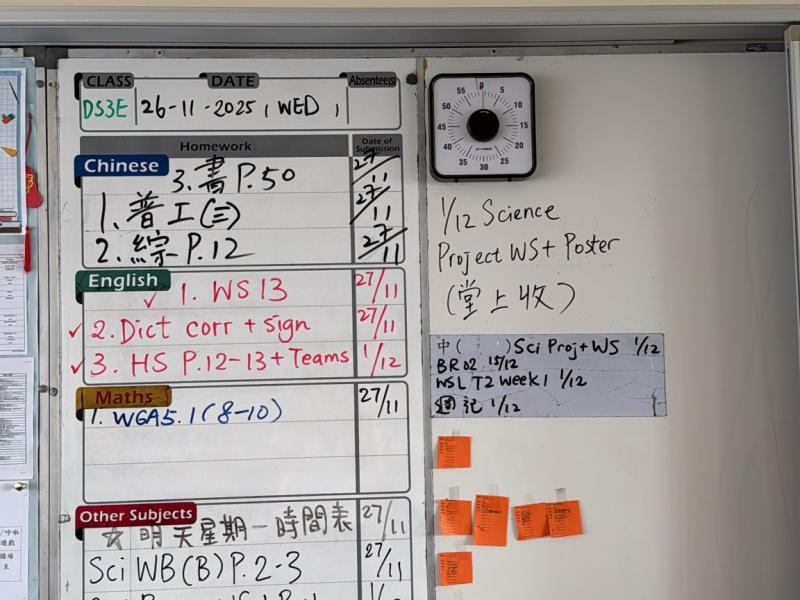 CLASS DATE Absentees
DS3E 26-11-2025, WED,
Homework Date of Submission
Chinese
3. 書 P.50 27/11
1. 普工(三) 27/11
2. 綜 P.12 27/11
English
✓ 1. WS 13 27/11
✓ 2. Dict corr + sign 27/11
✓ 3. HS P.12-13 + Teams 1/12
Maths
1. WGA5.1 (8-10) 27/11
Other Subjects
☆ 明天星期一時間表 27/11
Sci WB(B) P.2-3 27/11
0 5 10 15 20 25 30 35 40 45 50 55
1/12 Science
Project WS + Poster
(堂上收)
中( ) Sci Proj + WS 1/12
BR 02 15/12
WSL T2 Week 1 1/12
週記 1/12